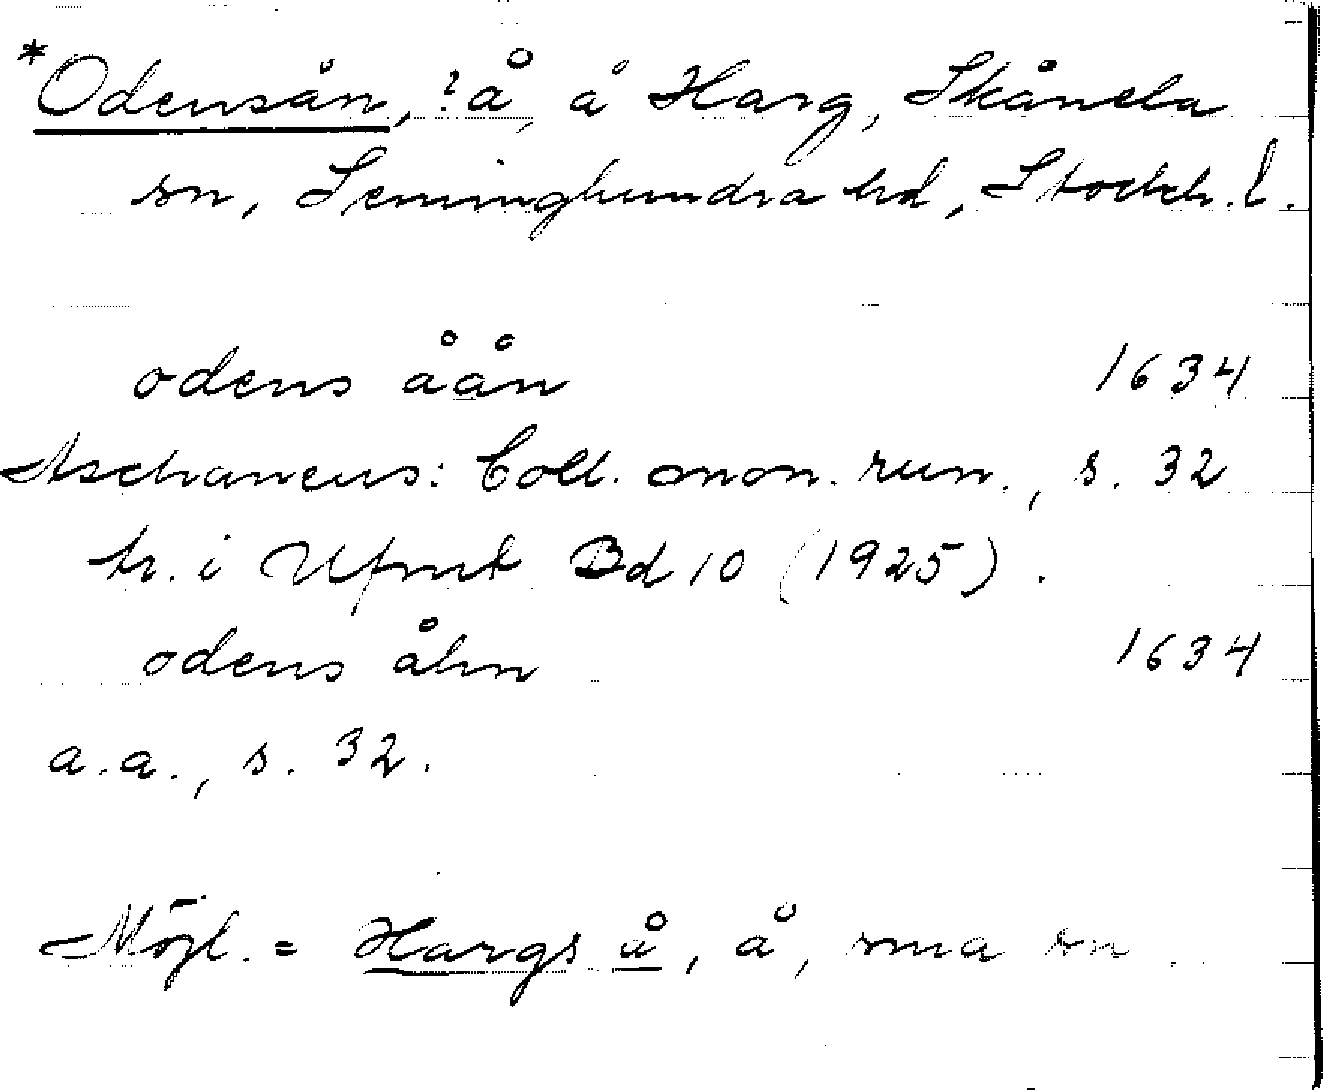 *Odensån, ?å, å Harg, Skånela
sn, Seminghundra hd, Stockh. l.
odens åån 1634
Aschaneus: Coll. onon. run., s. 32
tr. i Ufmt Bd 10 (1925).
odens åhn 1634
a.a., s. 32.
Möjl. = Hargs å, å, sma sn